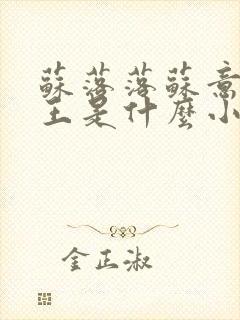 蘇落落蘇意
王是什麼小
金正淑